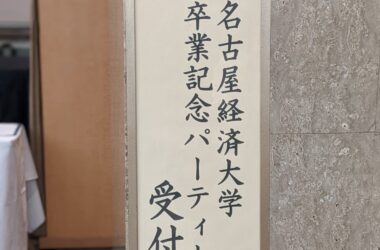 名古屋経済大学
卒業記念パーティー
受付